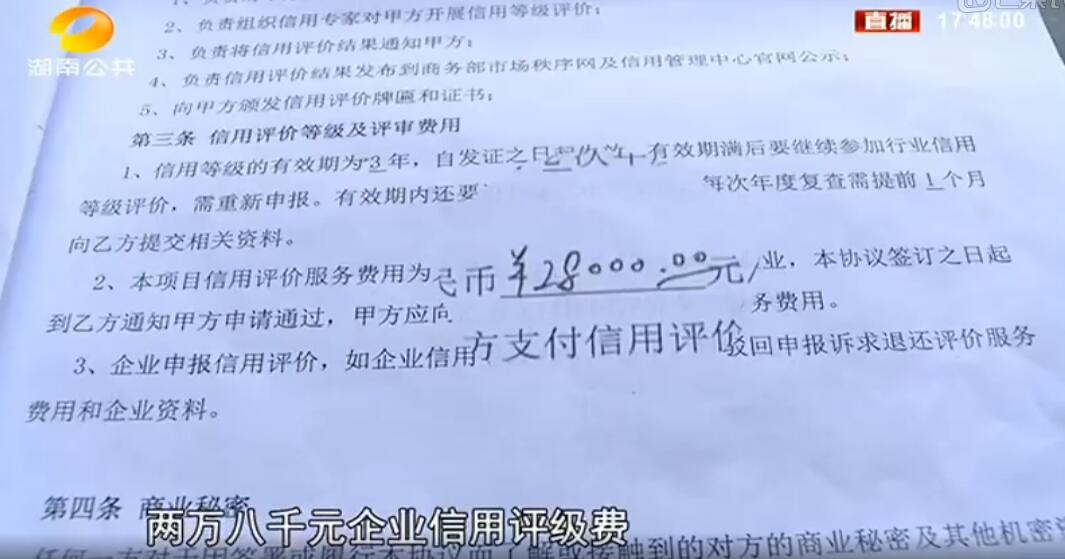 湖南公共
直播 17:48:00
2、负责组织信用专家对甲方开展信用等级评价;
3、负责将信用评价结果通知甲方;
4、负责信用评价结果发布到商务部市场秩序网及信用管理中心官网公示;
5、向甲方颁发信用评价牌匾和证书;
第三条 信用评价等级及评审费用
1、信用等级的有效期为3年,自发证之日 有效期满后要继续参加行业信用
等级评价,需重新申报。有效期内还要 每次年度复查需提前1个月
向乙方提交相关资料。
2、本项目信用评价服务费用为 币¥28000.00元/ 业,本协议签订之日起
到乙方通知甲方申请通过,甲方应向 务费用。
方支付信用评价
3、企业申报信用评价,如企业信用 驳回申报诉求退还评价服务
费用和企业资料。
第四条 商业秘密
两万八千元企业信用评级费
的对方的商业秘密及其他机密